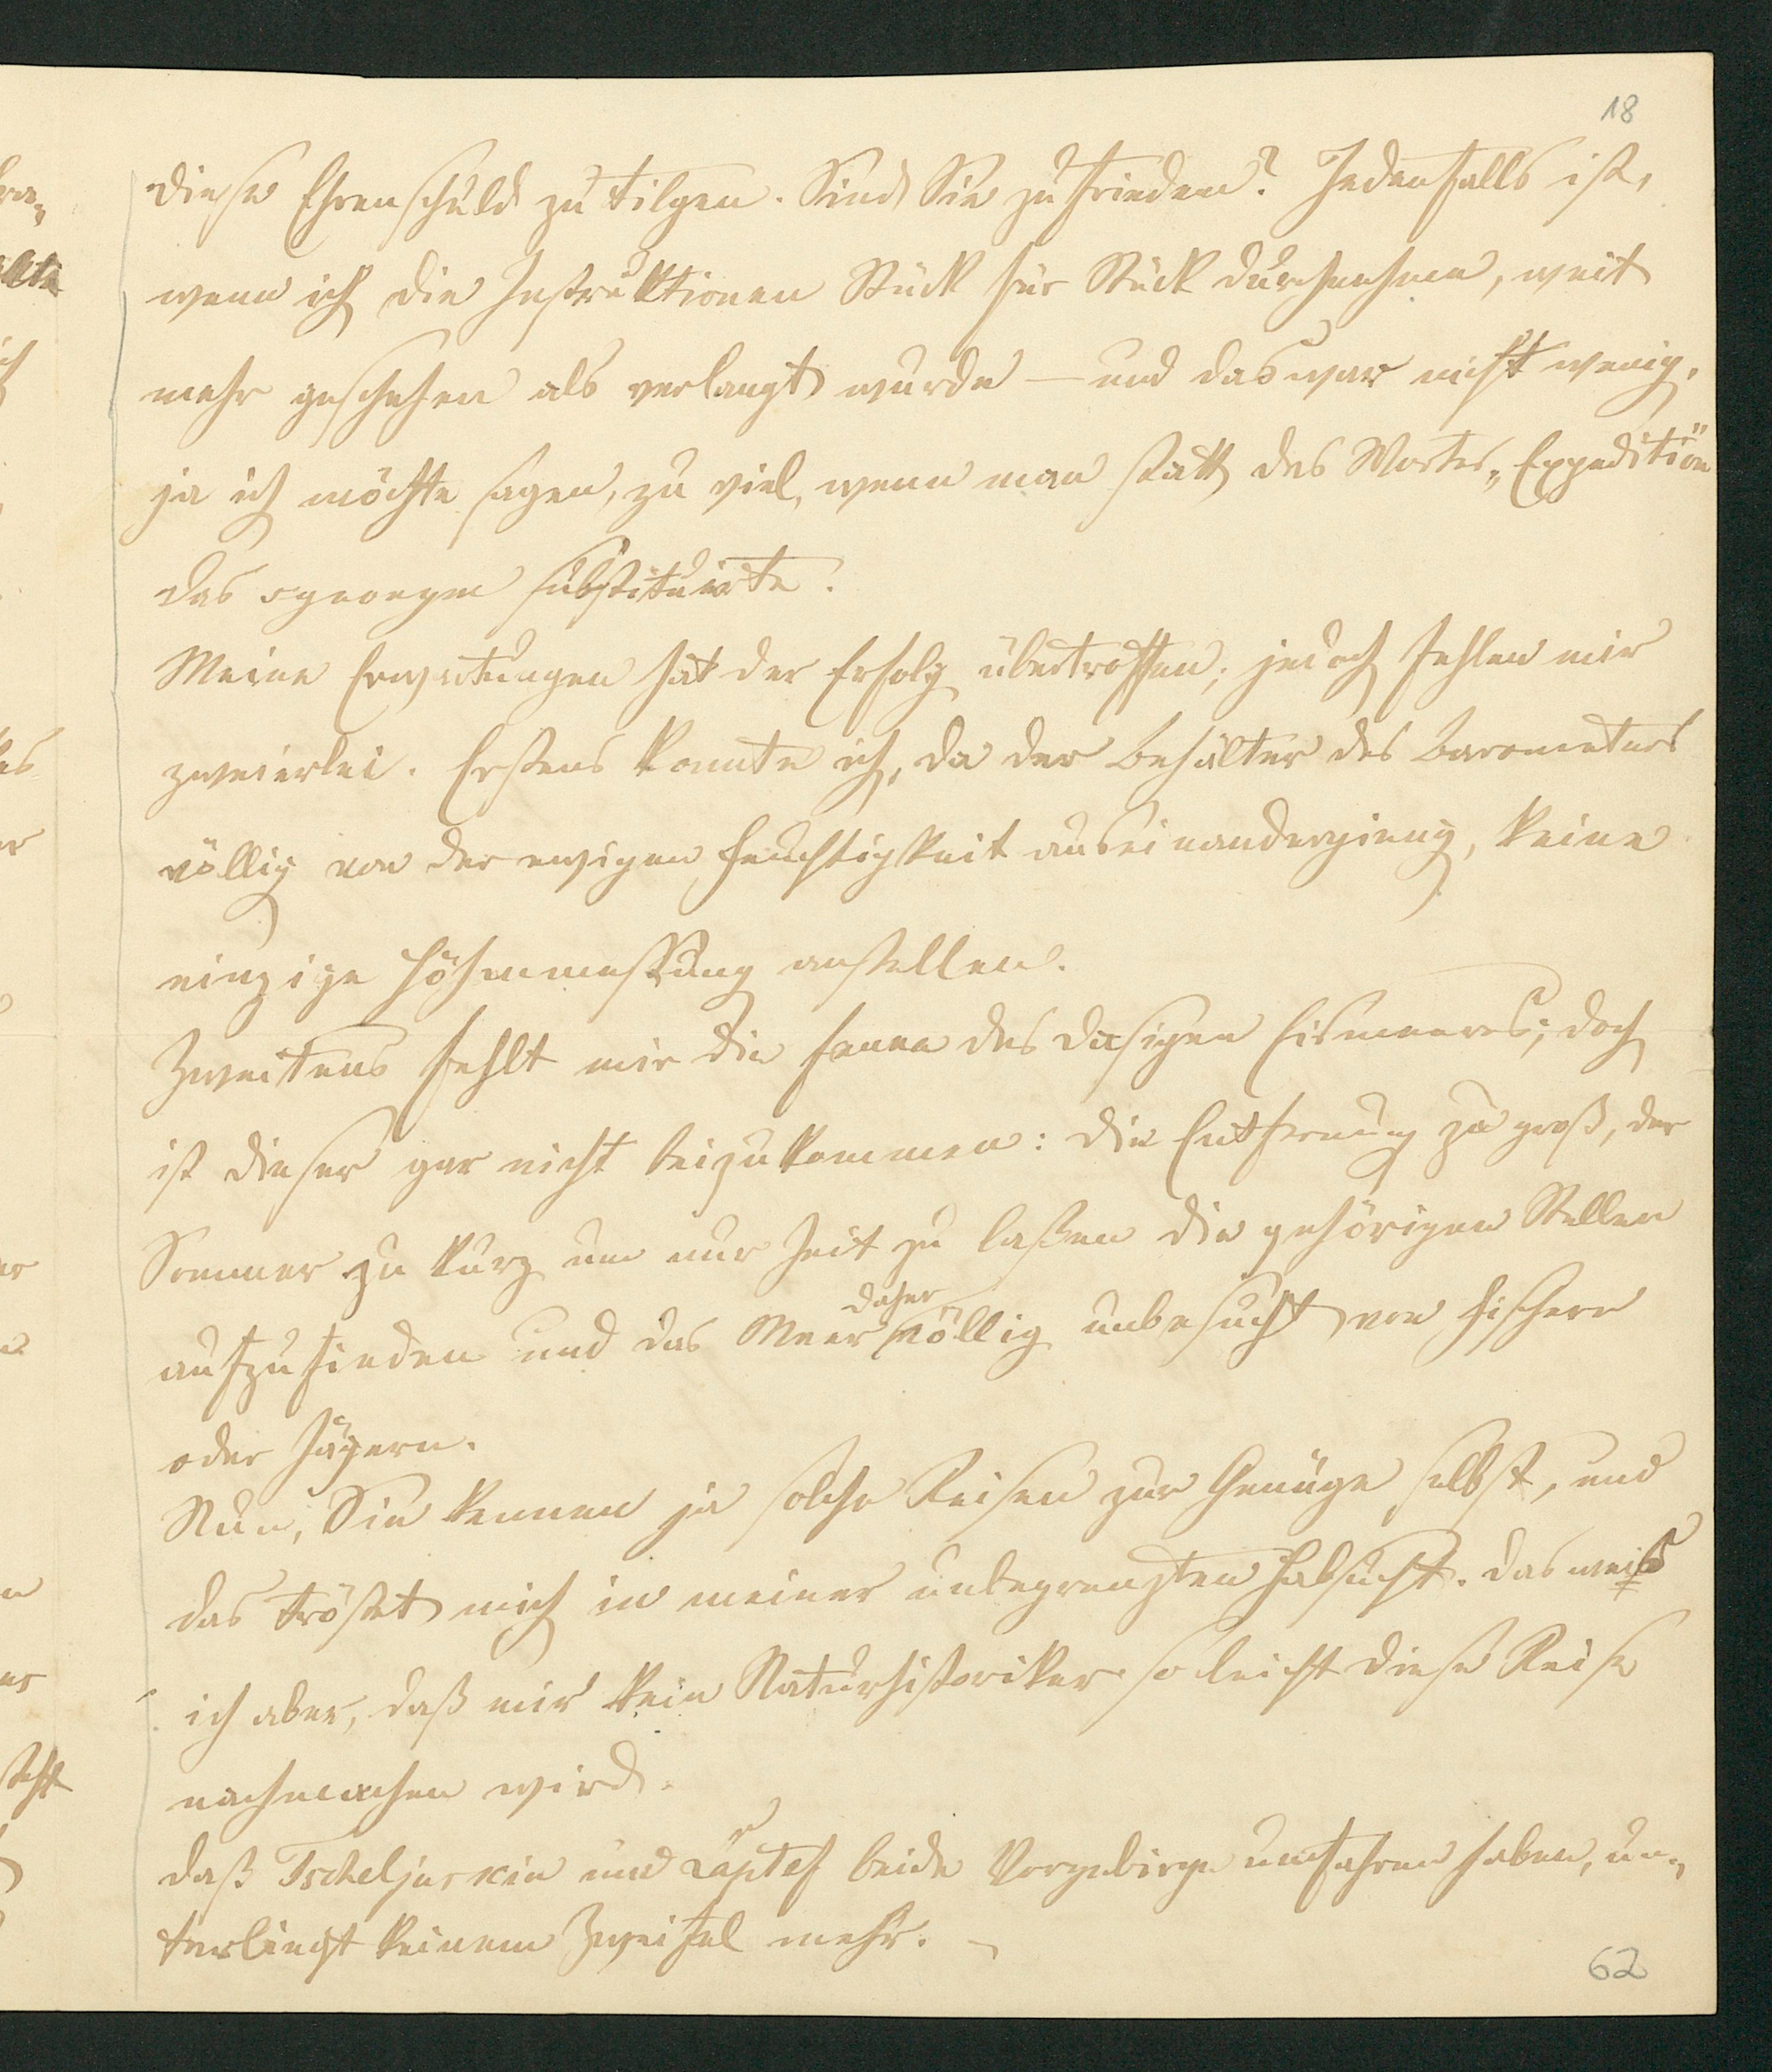 18
diese Ehrenschuld zu tilgen. Sind Sie zufrieden? Jedenfalls ist,
wenn ich die Instruktionen Stück für Stück durchnehme, weit
mehr geschehen als verlangt wurde — und das war nicht wenig,
ja ich möchte sagen, zu viel, wenn man statt des Wortes „Expedition"
das substituirte.
Meine Erwartungen hat der Erfolg übertroffen; jedoch fehlen mir
zweierlei. Erstens konnte ich, da der Behälter des Barometers
völlig von der ewigen Feuchtigkeit auseinandergieng, keine
einzige Höhenmessung anstellen.
Zweitens fehlt mir die Fauna des dasigen Eismeeres; doch
ist dieser gar nicht beizukommen: die Entfernung zu groß, der
Sommer zu kurz um nur Zeit zu laßen die gehörigen Stellen
aufzufinden und das Meer daher völlig unbesucht von Fischern
oder Jägern.
Nun, Sie kennen ja solche Reisen zur Genüge selbst, und
das tröstet mich in meiner unbegrenzten Habsucht. Das weiß
ich aber, daß mir kein Naturhistoriker so leicht diese Reise
nachmachen wird.
Daß Tscheljuskin und Laptef beide Vorgebirge umfahren haben, un-
terliegt keinem Zweifel mehr. –
62